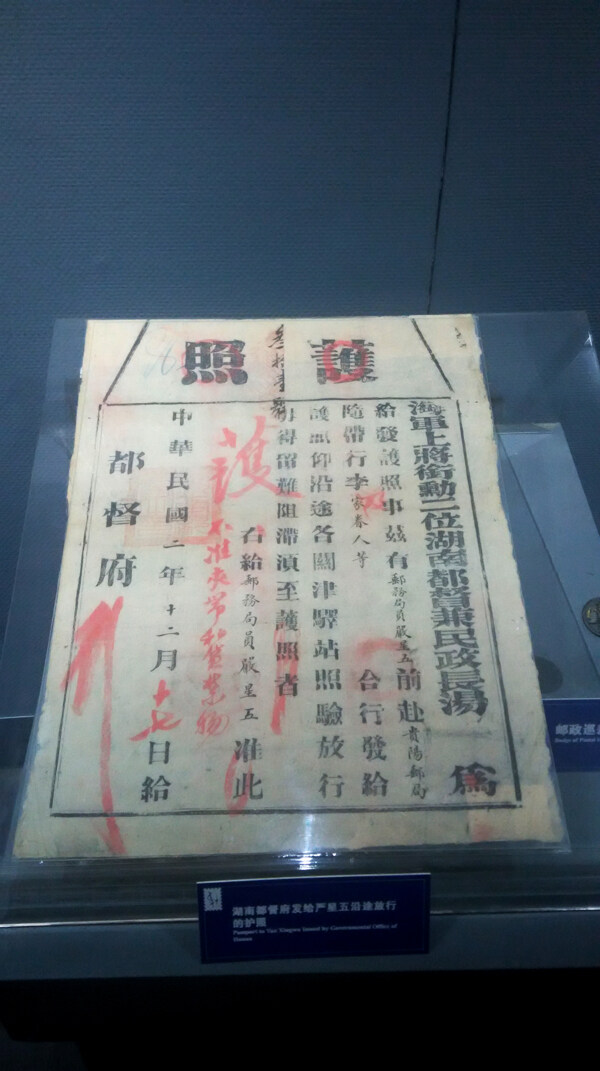 護照
海軍上將銜勳二位湖南都督兼民政長湯 爲
給發護照事茲有郵務局員嚴星五前赴貴陽郵局
隨帶行李家眷人等 合行發給
護照仰沿途各關津驛站照驗放行
毋得留難阻滯須至護照者
右給郵務局員嚴星五准此
護
不准夾帶私貨禁物
中華民國二年十二月十七日給
都督府
湖南都督府发给严星五沿途旅行
的护照
Passport to Yan Xingwu Issued by Governmental Office of
Hunan
邮政巡